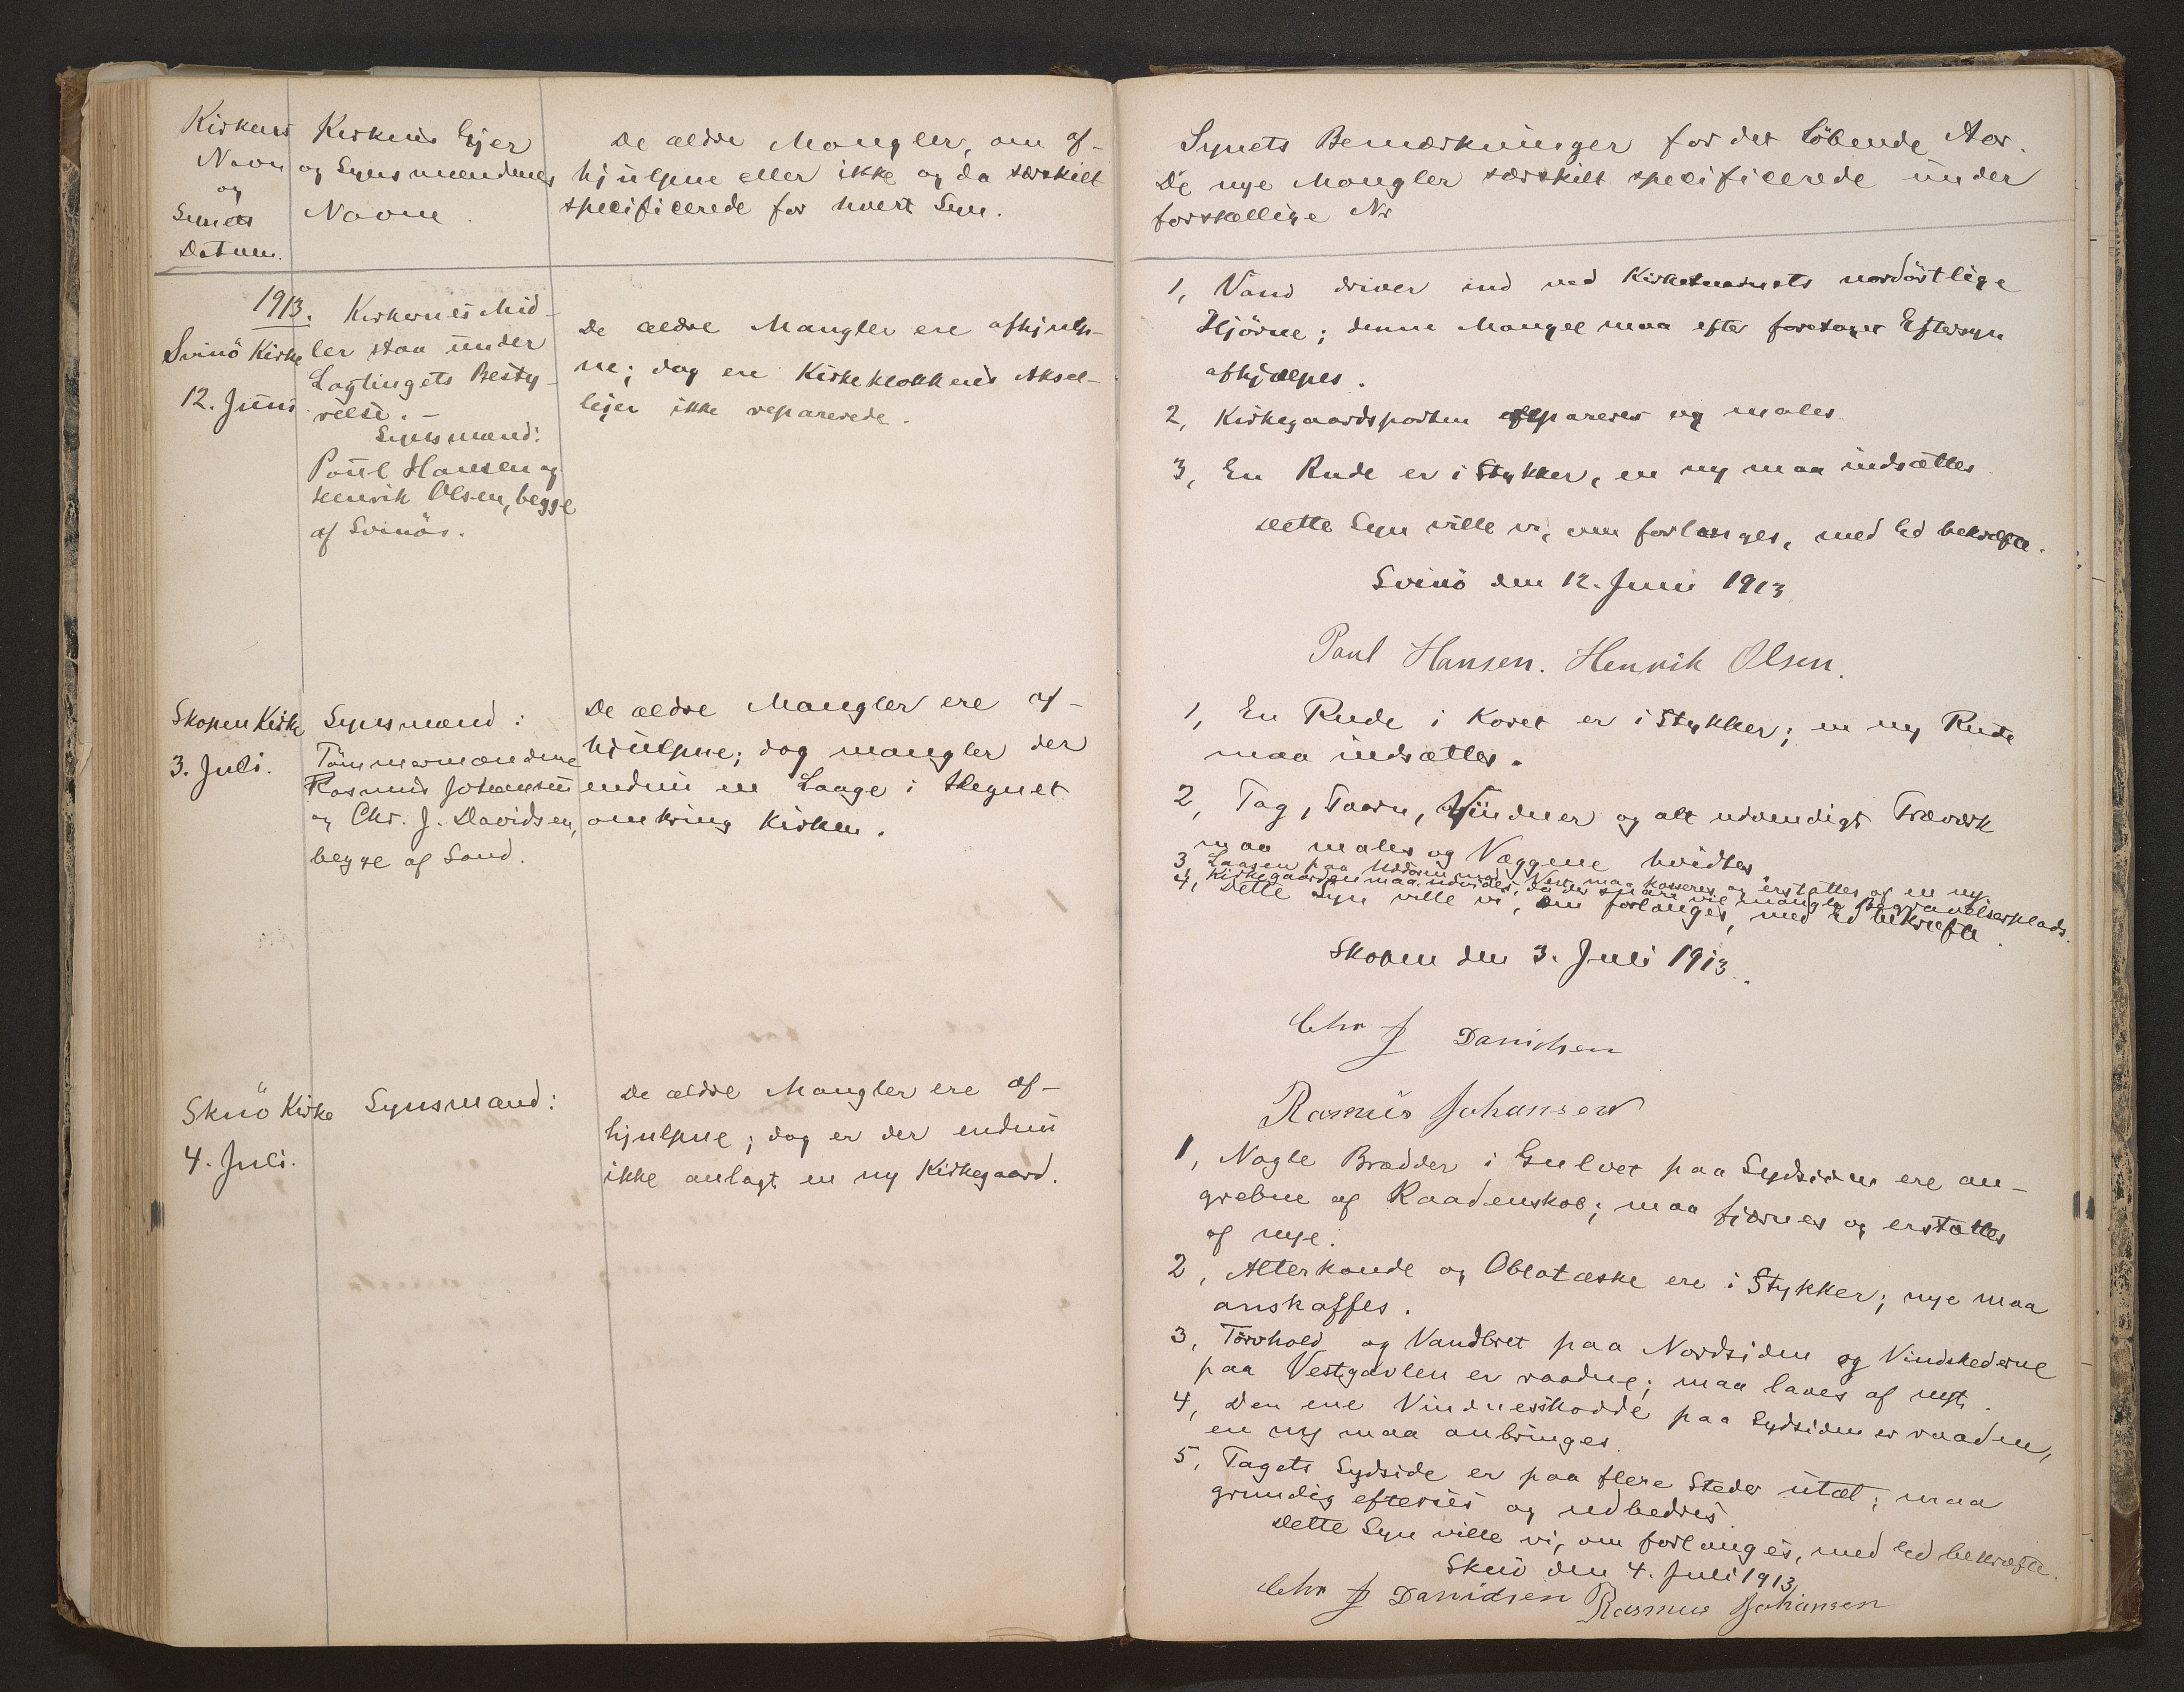 Kirkens
Navn
og
Synets
Datum.
Kirkens Ejer
og Synsmændenes
Navne.
De ældre Mangler, om af-
hjulpne eller ikke og da særskilt
specificerede for hvert Syn.
1913.
Svinö Kirke
12. Juni
Kirkernes Mid-
ler staa under
Lagtingets Besty-
relse. -
Synsmænd:
Poul Hansen og
Henrik Olsen, begge
af Svinöi.
De ældre Mangler ere afhjulp-
ne; dog ere Kirkeklokkens Aksel-
lejer ikke reparerede.
Skopen Kirke
3. Juli.
Synsmænd:
Tömmermændene
Rasmus Johansen
og Chr. J. Davidsen,
begge af Sand.
De ældre Mangler ere af-
hjulpne; dog mangler der
endnu en Laage i Hegnet
omkring Kirken.
Skuö Kirke
4. Juli.
Synsmænd:
De ældre Mangler ere af-
hjulpne; dog er der endnu
ikke anlagt en ny Kirkegaard.
Synets Bemærkninger for det löbende Aar.
De nye Mangler særskilt specificerede under
forskellige Nr
1, Vand driver ind ved Kirketaarnets nordöstlige
Hjörne; denne Mangel maa efter foretaget Eftersyn
afhjælpes.
2, Kirkegaardsporten repareres og males
3, En Rude er i Stykker, en ny maa indsættes
Dette Syn ville vi, om forlanges, med Ed bekræfte.
Svinö den 12. Juni 1913
Poul Hansen. Henrik Olsen.
1, En Rude i Koret er i Stykker; en ny Rude
maa indsættes.
2, Tag, Taarn, Vinduer og alt udvendigt Træværk
maa males og Væggene hvidtes.
3, Laasen paa mod Vest maa kasseres og erstattes af en ny.
4, Kirkegaarden maa udvides, da der snart vil mangle Begravelsesplads.
Dette Syn ville vi, om forlanges, med Ed bekræfte.
Skopen den 3. Juli 1913.
Chr J Davidsen
Rasmus Johansen
1, Nogle Brædder i Gulvet paa Sydsiden ere an-
grebne af Raadenskab; maa fjærnes og erstattes
af nye.
2, Alterkande og Oblatæske ere i Stykker; nye maa
anskaffes.
3, Törvhold og Vandbret paa Nordsiden og Vindskederne
paa Vestgavlen er raadne; maa laves af nyt.
4, Den ene Vinduesskodde paa Sydsiden er raaden,
en ny maa anbringes.
5, Tagets Sydside er paa flere Steder utæt; maa
grundig efterses og udbedres
Dette Syn ville vi, om forlanges, med Ed bekræfte.
Skuö den 4. Juli 1913
Chr J Davidsen Rasmus Johansen